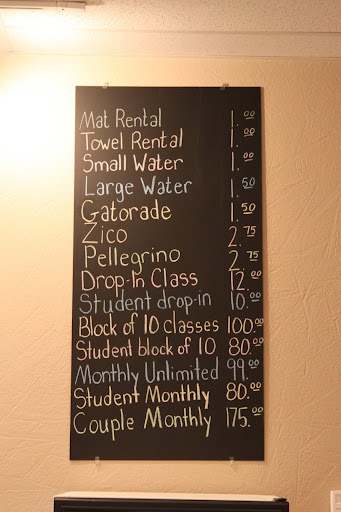 Mat Rental 1.00
Towel Rental 1.00
Small Water 1.00
Large Water 1.50
Gatorade 1.50
Zico 2.75
Pellegrino 2.75
Drop-In Class 12.00
Student drop-in 10.00
Block of 10 classes 100.00
Student block of 10 80.00
Monthly Unlimited 99.00
Student Monthly 80.00
Couple Monthly 175.00